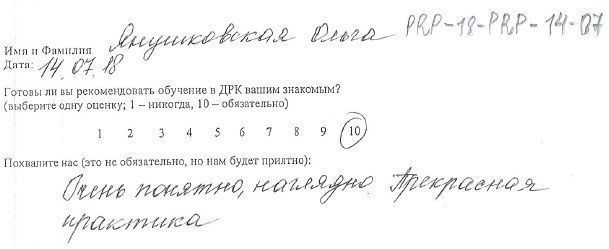 Имя и Фамилия Янушковская Ольга PRP-18-PRP-14-07
Дата: 14.07.18
Готовы ли вы рекомендовать обучение в ДРК вашим знакомым?
(выберите одну оценку; 1 – никогда, 10 – обязательно)
1 2 3 4 5 6 7 8 9 10
Похвалите нас (это не обязательно, но нам будет приятно):
Очень понятно, наглядно. Прекрасная
практика